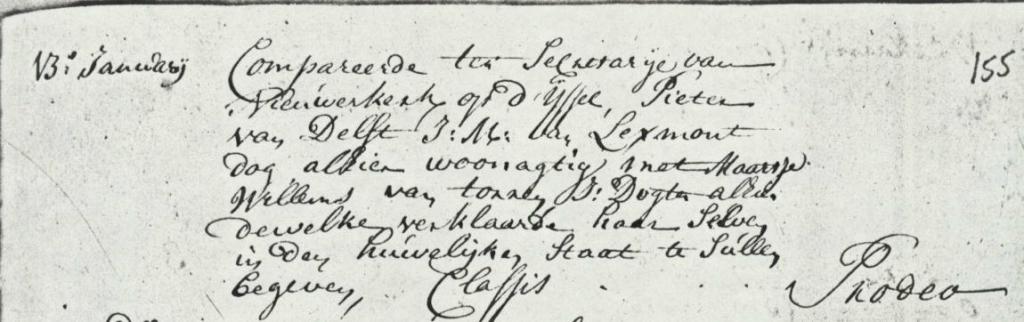 13: Januarij Compareerde ter Secretarije van 155
Nieuwerkerk op d'Yssel, Pieter
van Delft J: M: van Lexmont
dog alhier woonagtig met Maartje
Willems van tonren J: Dogter alhier
dewelke verklaarde haar Selven
in den huwelijken Staat te Sullen
begeven, Classis Prodeo